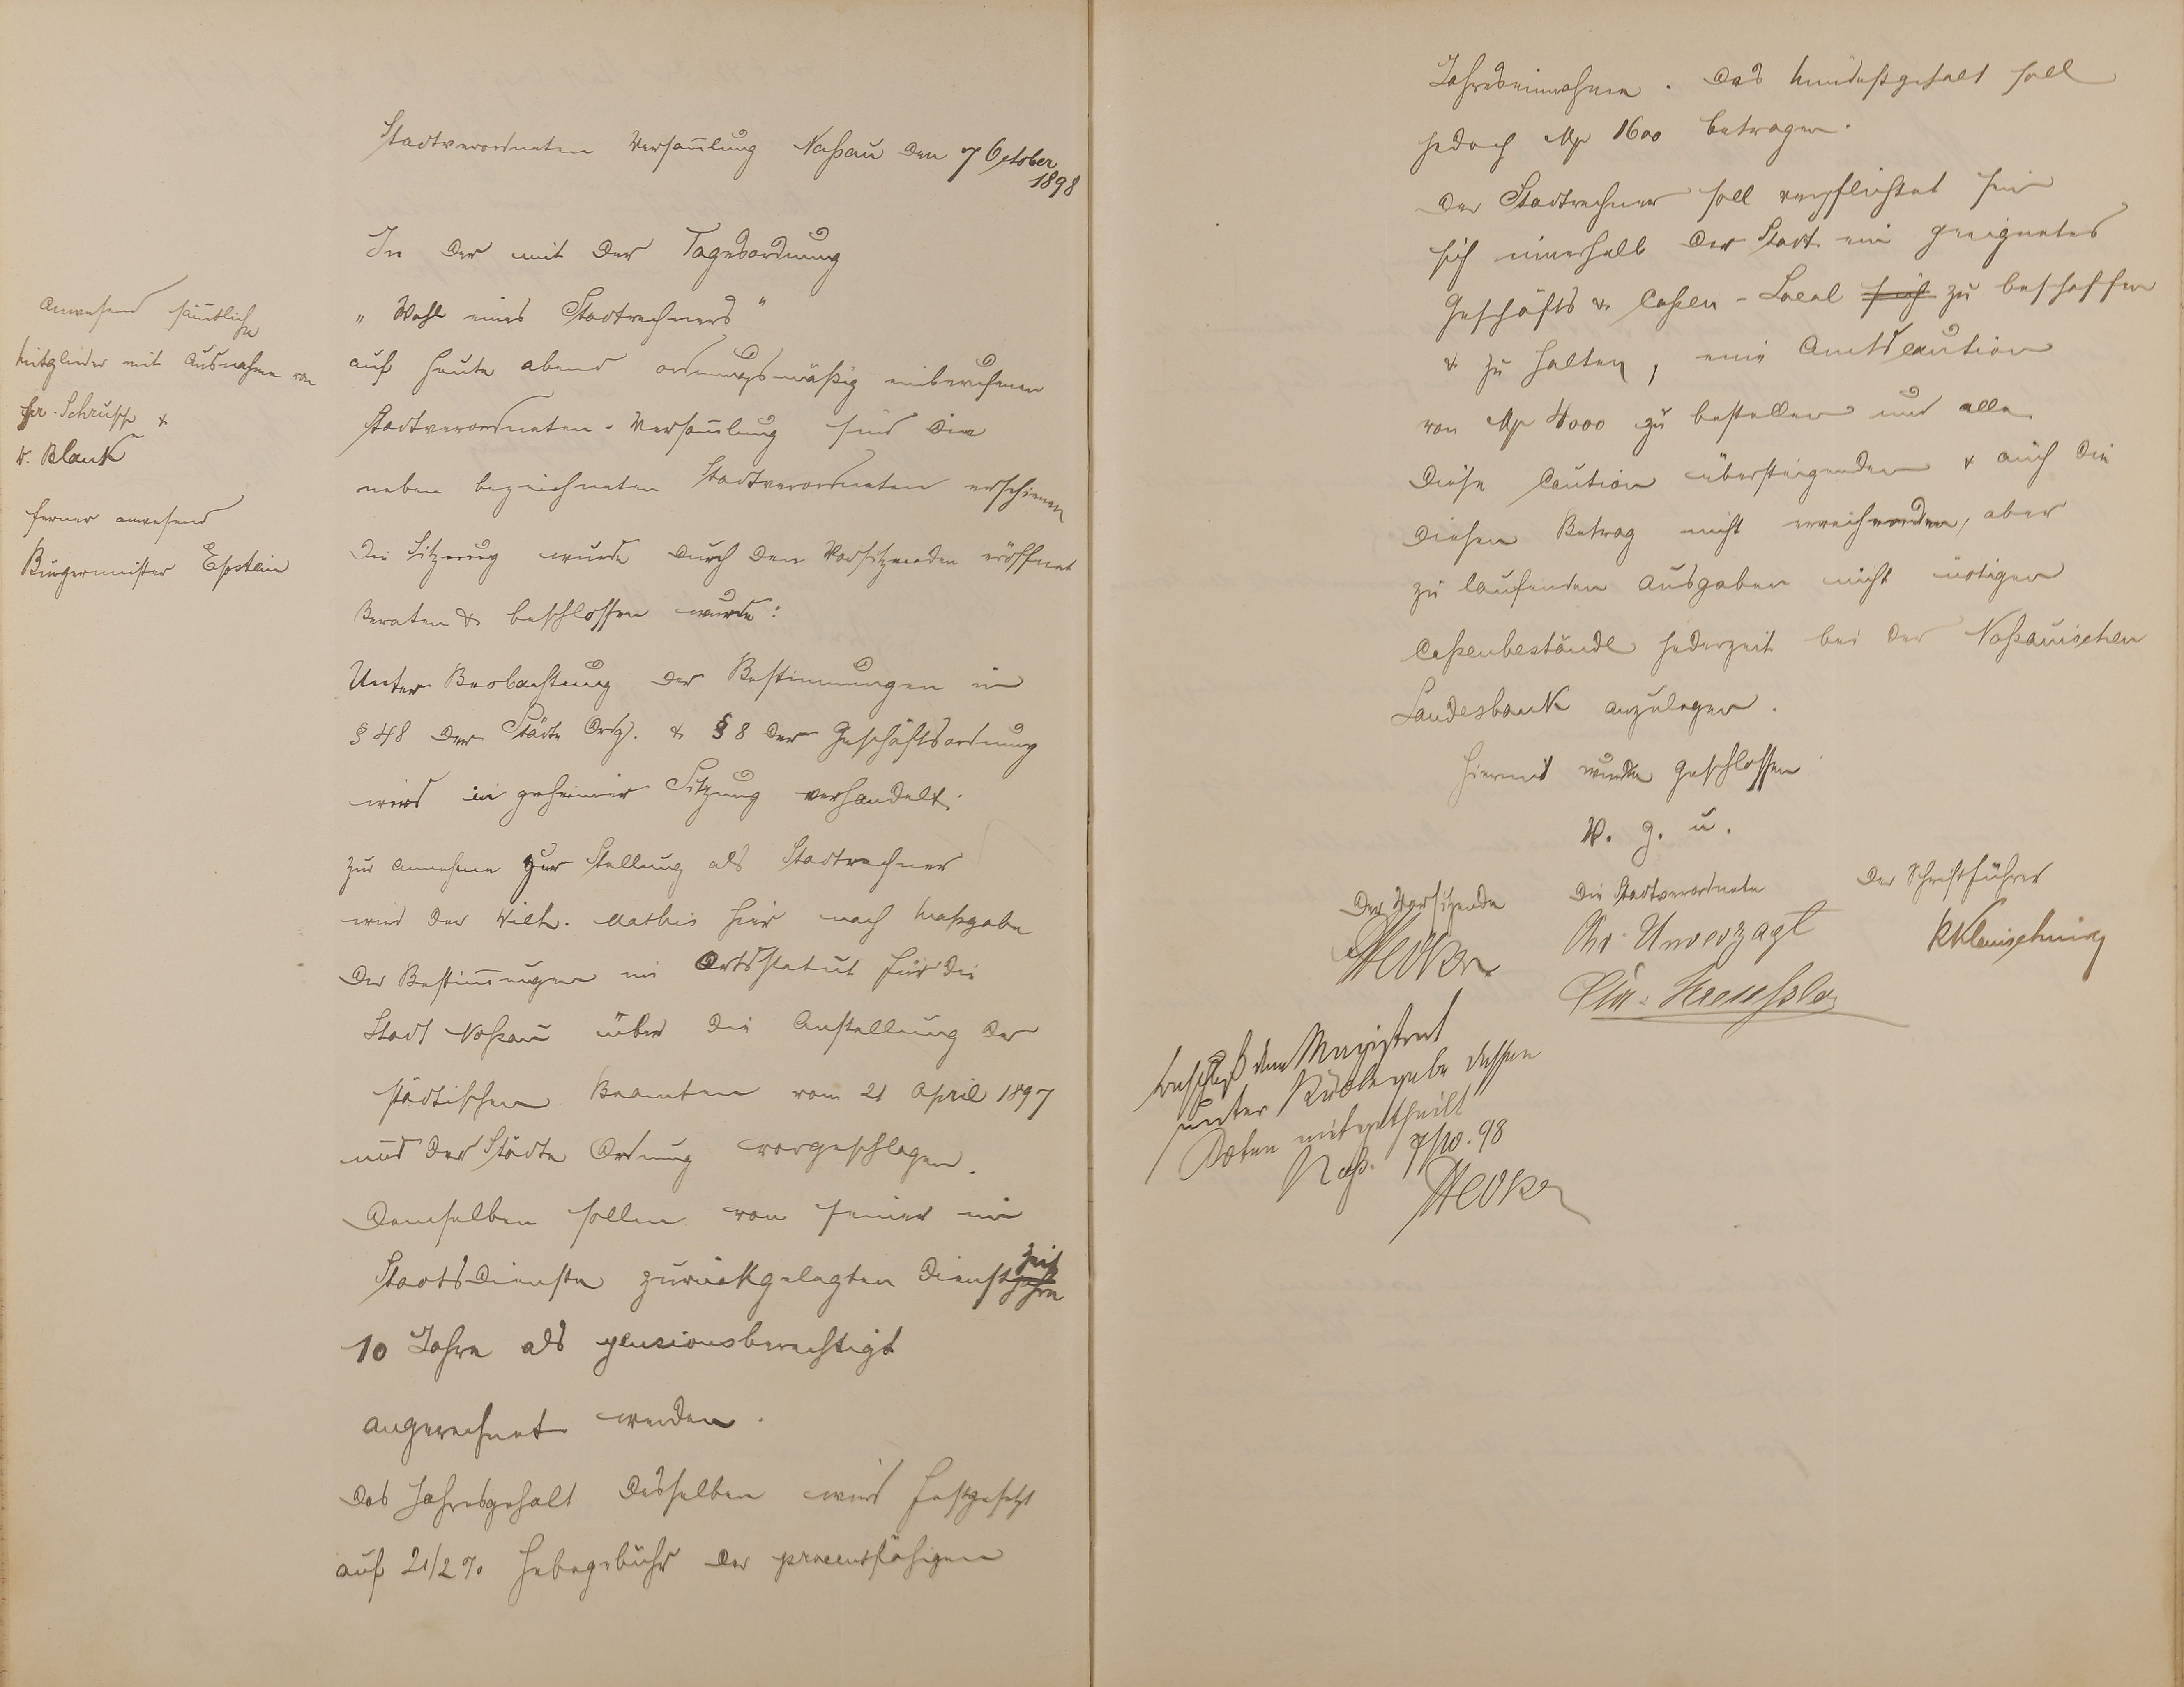 Stadtverordneten Versam̅lung Naßau den 7 October
1898
In der mit der Tagesordnung
„Wahl eines Stadtrechners"
auf heute abend ordnungsmäßig einberufenen
Stadtverordneten-Versam̅lung sind die
neben bezeichneten Stadtverordneten erschienen
Die Sitzung wurde durch den Vorsitzenden eröffnet
Beraten & beschlossen wurde:
Unter Beobachtung der Bestimmungen in
§ 48 der Städte Ordg. & § 8 der Geschäftsordnung
wird in geheimer Sitzung verhandelt.
zur Annahme zur Stellung als Stadtrechner
wird der Wilh. Mathis hier nach Maßgabe
der Bestim̅ungen im Ortsstatut für die
Stadt Naßau über die Anstellung der
städtischen Beamten vom 21 April 1897
und der Städte Ordnung vorgeschlagen.
Demselben sollen von seiner im
Staatsdienste zurückgelegten Dienstjahre zeit
10 Jahre als pensionsberechtigt
angerechnet werden.
Das Jahresgehalt desselben wird festgesetzt
auf 2 1/2 % Hebegebühr der procentfähigen
Anwesend säm̅tliche
Mitglieder mit Ausnahme von
Hr. Schrupp &
W. Blank
ferner anwesend
Bürgermeister Epstein
Jahreseinnahme. Das Mindestgehalt soll
jedoch Mk 1600 betragen.
Der Stadtrechner soll verpflichtet sein
sich innerhalb der Stadt ein geeignetes
Geschäfts & Caßen-Local sich zu beschaffen
& zu halten, eine Amtscaution
von Mk 4000 zu bestellen und alle
diese Caution übersteigenden & auch die
diesen Betrag nicht erreichenden, aber
zu laufenden Ausgaben nicht nötigen
Caßenbestände jederzeit bei der Naßauischen
Landesbank anzulegen.
Hiermit wurde geschlossen
V. g. u.
Der Vorsitzende Die Stadtverordnete Der Schriftführer
Chr. Unverzagt
Chr.
Beschluß dem Magistrat
unter Rückgabe dessen
Akten mitgetheilt
Naß. 7/10.98